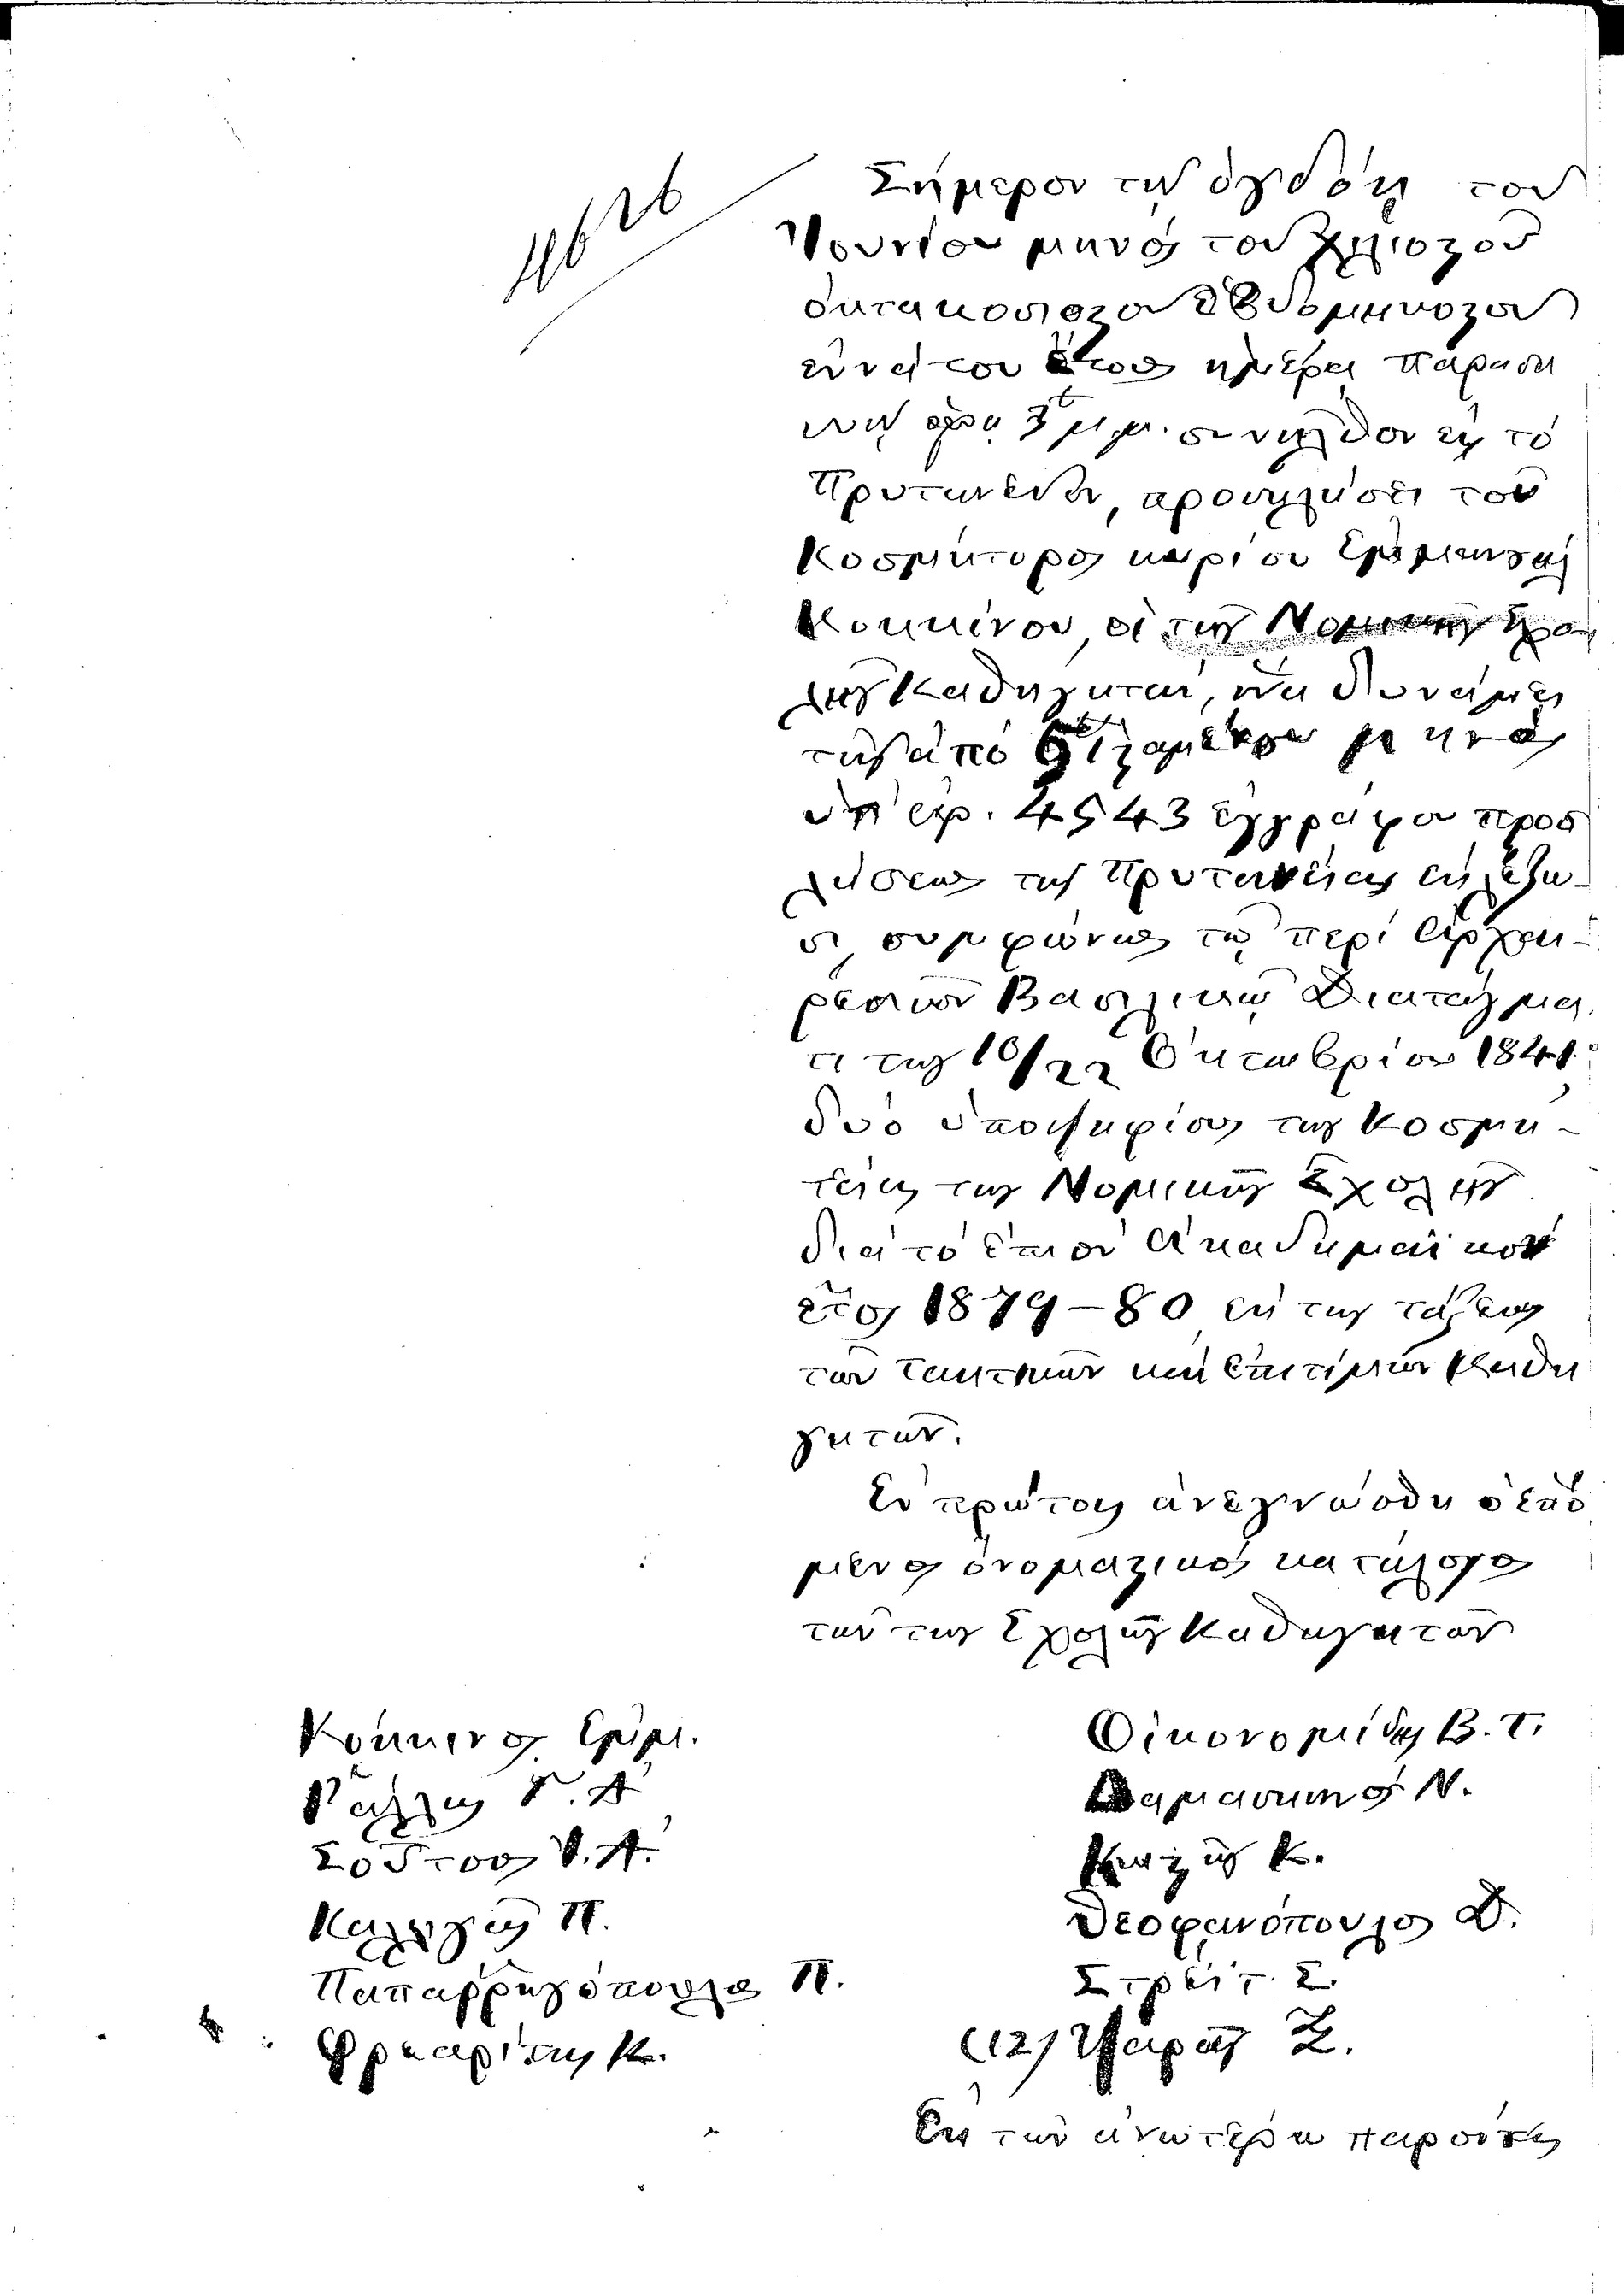 Σήμερον τῇ ὀγδόῃ τοῦ
Ἰουνίου μηνός τοῦ χιλιοστοῦ
ὀκτακοσιοστοῦ ἑβδομηκοστοῦ
ἐννάτου ἔτους ἡμέρᾳ Παρασκευῇ
ὥρᾳ 3 μ.μ. συνῆλθον εἰς τό
Πρυτανεῖον, προσκλήσει τοῦ
Κοσμήτορος κυρίου Ἐμμανουήλ
Κοκκίνου, οἱ τῆς Νομικῆς Σχο-
λῆς Καθηγηταί, ἵνα δυνάμει
τῆς ἀπό 5 μηνός
ὑπ' ἀρ. 4543 ἐγγράφου προσ
κλήσεως τῆς Πρυτανείας ἐκλέξω-
σι, συμφώνως τῷ περί Ἀρχαι-
ρεσιῶν Βασιλικῷ Διατάγμα
τι τῆς 10/22 Ὀκτωβρίου 1841
δύο ὑποψηφίους τῆς Κοσμη-
τείας τῆς Νομικῆς Σχολῆς
διά τό ἐπιόν Ἀκαδημαϊκόν
ἔτος 1879-80 ἐκ τῆς τάξεως
τῶν Τακτικῶν καί Ἐπιτίμων Καθη
γητῶν.
Ἐν πρώτοις ἀνεγνώσθη ὁ ἑπό
μενος ὀνομαστικός κατάλογος
τῶν τῆς Σχολῆς Καθηγητῶν
Κόκκινος Ἐμμ.
Ῥάλλης Γ. Α
Σοῦτσος Ι. Α.
Καλλιγᾶς Π.
Παπαρρηγόπουλος Π.
Φρεαρίτης Κ.
Οἰκονομίδης Β. Τ.
Δαμασκηνός Ν.
Κωστῆς Κ.
Θεοφανόπουλος Δ.
Στρέϊτ Σ.
(12) Ψαρᾶς Σ.
Ἐκ τῶν ἀνωτέρω παρόντες